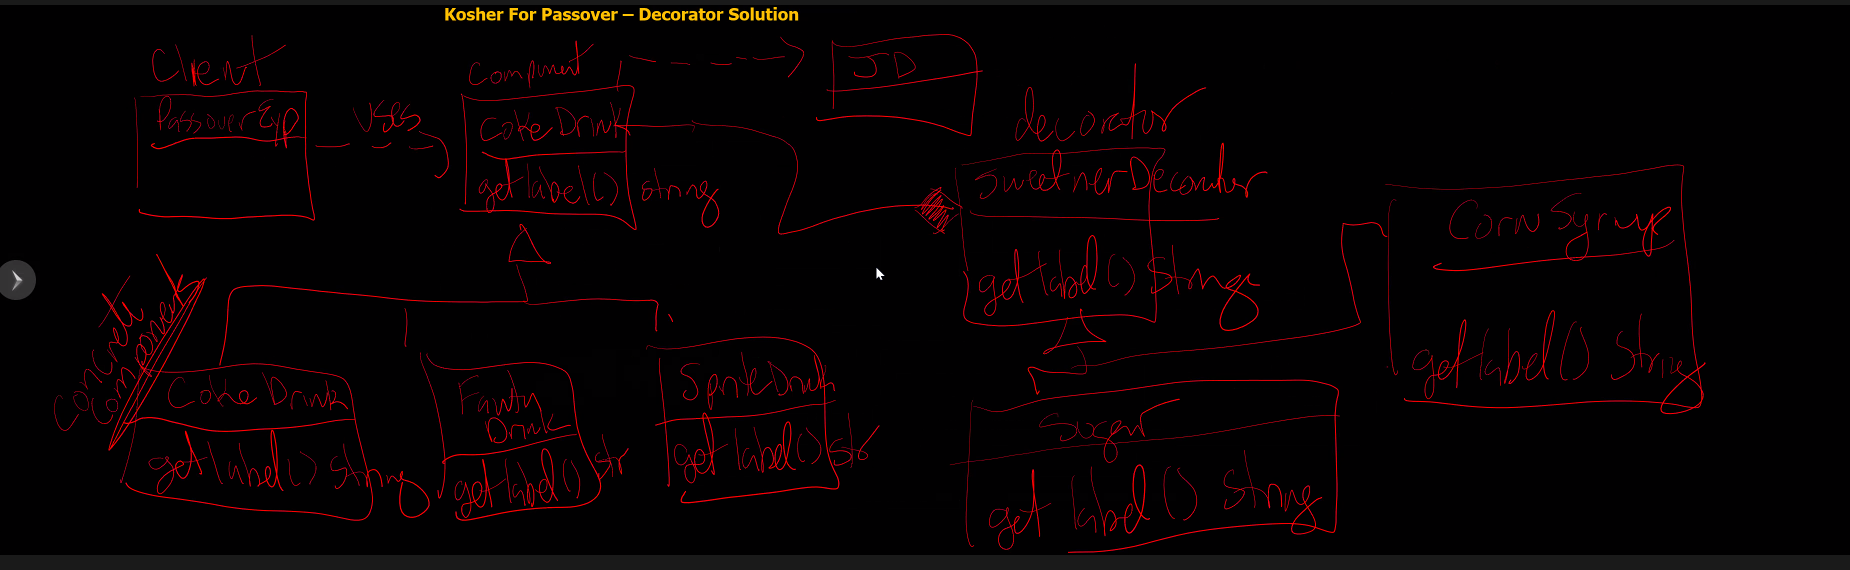 Kosher For Passover – Decorator Solution
Client
PassoverExp
uses
Component
Coke Drink
getlabel() string
JD
decorator
SweetnerDecorator
getlabel() String
Corn Syrup
getlabel() String
Concrete
Components
Coke Drink
getlabel() String
Fanta
Drink
getlabel() Str
SpriteDrink
getlabel() Str
Sugar
getlabel() String